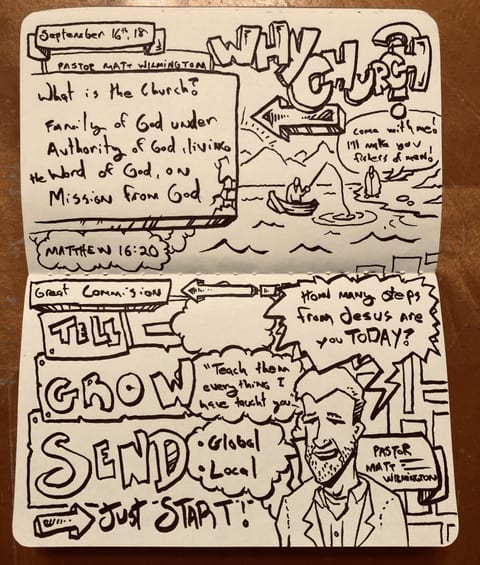 September 16th, 18
PASTOR MATT WILMINGTON
WHY
CHURCH?
What is the Church?
Family of God under
Authority of God, living
the Word of God, on
Mission From God
come with me!
I'll make you
fishers of men!
MATTHEW 16:20
Great Commision
TELL
How many steps
From Jesus are
you TODAY?
GROW
"Teach them
everything I
have taught you
SEND
• Global
• Local
PASTOR
MATT
WILMINGTON
JUST START!